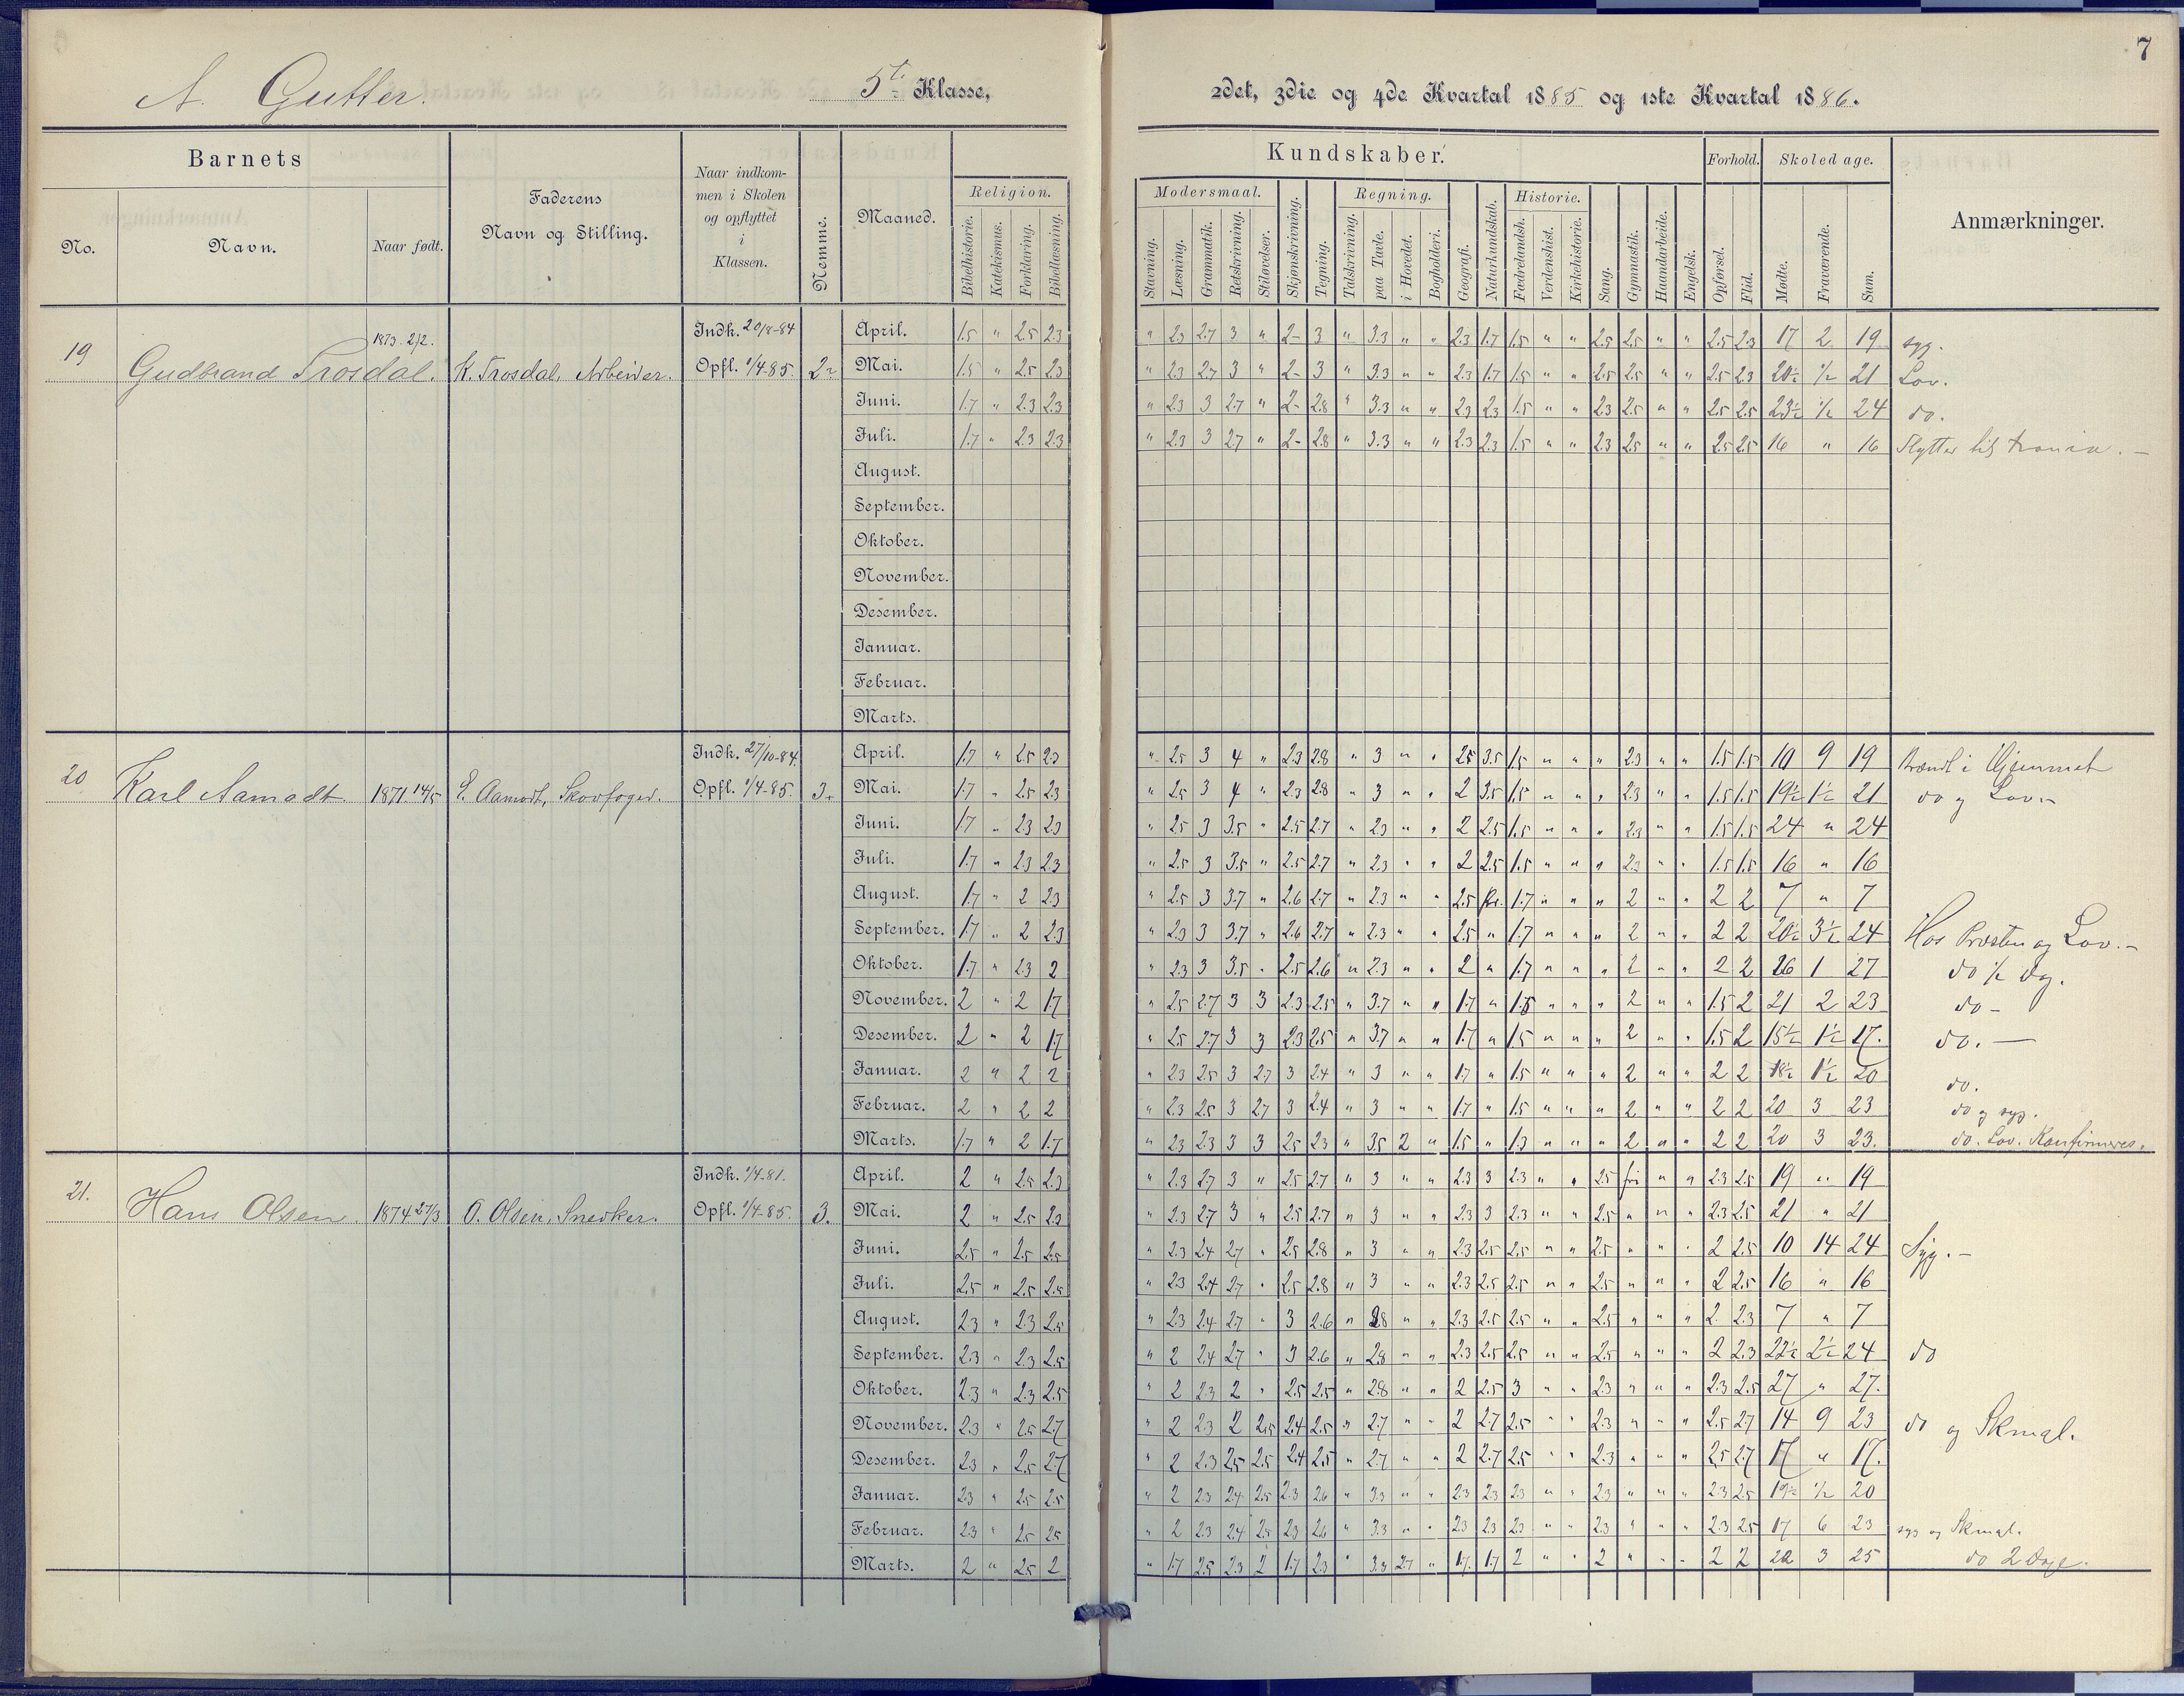 7
A. Gutter. 5te Klasse, 2det, 3die og 4de Kvartal 1885 og 1ste Kvartal 1886.
Barnets
No.
Navn.
Naar født.
Faderens
Navn og Stilling.
Naar indkom-
men i Skolen
og opflyttet
i
Klassen.
Nemme.
Maaned.
Kundskaber.
Religion.
Bibelhistorie.
Katekismus.
Forklaring.
Bibellæsning.
Modersmaal.
Stavning.
Læsning.
Grammatik.
Retskrivning.
Stiløvelser.
Skjønskrivning.
Tegning.
Regning.
Talskrivning.
paa Tavle.
i Hovedet.
Bogholderi.
Geografi.
Naturkundskab.
Historie.
Fædrelandsh.
Verdenshist.
Kirkehistorie.
Sang.
Gymnastik.
Haandarbeide.
Engelsk.
Forhold.
Opførsel.
Flid.
Skoledage.
Mødte.
Fraværende.
Sum.
Anmærkninger.
19 Gudbrand Trosdal. 1873 2/2. K. Trosdal, Arbeider. Indk. 20/8-84 Opfl. 1/4-85. 2-
April. 1.5 " 2.5 2.3 " 2.3 2.7 3 " 2- 3 " 3.3 " " 2.3 1.7 1.5 " " 2.5 2.5 " " 2.5 2.3 17 2 19 syg.
Mai. 1.5 " 2.5 2.3 " 2.3 2.7 3 " 2- 3 " 3.3 " " 2.3 1.7 1.5 " " 2.5 2.5 " " 2.5 2.3 20½ ½ 21 Lov.
Juni. 1.7 " 2.3 2.3 " 2.3 3 2.7 " 2- 2.8 " 3.3 " " 2.3 2.3 1.5 " " 2.3 2.5 " " 2.5 2.5 23½ ½ 24 do.
Juli. 1.7 " 2.3 2.3 " 2.3 3 2.7 " 2- 2.8 " 3.3 " " 2.3 2.3 1.5 " " 2.3 2.5 " " 2.5 2.5 16 " 16 Flytter til
August.
September.
Oktober.
November.
Desember.
Januar.
Februar.
Marts.
20 Karl Aamodt 1871 14/5 E. Aamodt, Skovfoged. Indk. 27/10-84. Opfl. 1/4-85. 3.
April. 1.7 " 2.5 2.3 " 2.5 3 4 " 2.3 2.8 " 3 " " 2.5 3.5 1.5 " " " 2.3 " " 1.5 1.5 10 9 19 i Hjemmet
Mai. 1.7 " 2.5 2.3 " 2.5 3 4 " 2.3 2.8 " 3 " " 2 3.5 1.5 " " " 2.3 " " 1.5 1.5 19½ 1½ 21 do og Lov.-
Juni. 1.7 " 2.3 2.3 " 2.5 3 3.5 " 2.5 2.7 " 2.3 " " 2 2.5 1.5 " " " 2.3 " " 1.5 1.5 24 " 24
Juli. 1.7 " 2.3 2.3 " 2.5 3 3.5 " 2.5 2.7 " 2.3 " " 2 2.5 1.5 " " " 2.3 " " 1.5 1.5 16 " 16
August. 1.7 " 2 2.3 " 2.5 3 3.7 " 2.6 2.7 " 2.3 " " 2.5 1.7 " " " 2 " " 2 2 7 " 7
September. 1.7 " 2 2.3 " 2.3 3 3.7 " 2.6 2.7 " 2.3 " " 2.5 " 1.7 " " " 2 " " 2 2 20½ 3½ 24 Hos Præsten og Lov.-
Oktober. 1.7 " 2.3 2 " 2.3 3 3.5 " 2.5 2.6 " 2.3 " " 2 " 1.7 " " " 2 " " 2 2 26 1 27 do ½ dag.
November. 2 " 2 1.7 " 2.5 2.7 3 3 2.3 2.5 " 3.7 " " 1.7 " 1.5 " " " 2 " " 1.5 2 21 2 23 do -
Desember. 2 " 2 1.7 " 2.5 2.7 3 3 2.3 2.5 " 3.7 " " 1.7 " 1.5 " " " 2 " " 1.5 2 15½ 1½ 17. do. -
Januar. 2 " 2 2 " 2.3 2.5 3 2.7 3 2.4 " 3 " " 1.7 " 1.5 " " " 2 " " 2 2 18½ 1½ 20 do.
Februar. 2 " 2 2 " 2.3 2.5 3 2.7 3 2.4 " 3 " " 1.7 " 1.5 " " " 2 " " 2 2 20 3 23 do og syg.
Marts. 1.7 " 2 1.7 " 2.3 2.3 3 3 2.5 2.3 " 3.5 2 " 1.5 " 1.3 " " " 2 " " 2 2 20 3 23. do. Lov. Konfirmeres.
21. Hans Olsen 1874 27/3 O. Olsen, Snedker. Indk. 1/4-81. Opfl. 1/4-85. 3.
April. 2 " 2.5 2.3 " 2.3 2.7 3 " 2.5 2.7 " 3 " " 2.3 3 2.3 " " 2.5 fri " " 2.3 2.5 19 " 19
Mai. 2 " 2.5 2.3 " 2.3 2.7 3 " 2.5 2.7 " 3 " " 2.3 3 2.3 " " 2.5 " " " 2.3 2.5 21 " 21
Juni. 2.5 " 2.5 2.5 " 2.3 2.4 2.7 " 2.5 2.8 " 3 " " 2.3 2.5 2.5 " " 2.5 " " " 2 2.5 10 14 24 Syg. -
Juli. 2.5 " 2.5 2.5 " 2.3 2.4 2.7 " 2.5 2.8 " 3 " " 2.3 2.5 2.5 " " 2.5 " " " 2 2.5 16 " 16
August. 2.3 " 2.3 2.5 " 2.3 2.4 2.7 " 3 2.6 " 2.8 " " 2.3 2.5 2.5 " " 2.5 " " " 2. 2.3 7 " 7
September. 2.3 " 2.3 2.5 " 2 2.4 2.7 " 3 2.6 " 2.8 " " 2.3 2.5 2.5 " " 2.5 " " " 2 2.3 22½ 2½ 24 do
Oktober. 2.3 " 2.3 2.5 " 2 2.3 2 " 2.5 2.5 " 2.8 " " 2 2.5 3 " " 2.3 " " " 2.3 2.5 27 " 27.
November. 2.3 " 2.5 2.7 " 2 2.3 2 2.5 2.4 2.5 " 2.7 " " 2 2.7 2.5 " " 2.3 " " " 2.5 2.7 14 9 23 do og Skmgl.
Desember. 2.3 " 2.5 2.7 " 2 2.3 2.5 2.5 2.4 2.5 " 2.7 " " 2 2.7 2.5 " " 2.3 " " " 2.5 2.7 17 " 17.
Januar. 2.3 " 2.5 2.5 " 2 2.3 2.4 2.5 2.3 2.6 " 3.3 " " 2.3 2.3 2.3 " " 2.3 " " " 2.3 2.5 19½ ½ 20
Februar. 2.3 " 2.5 2.5 " 2 2.3 2.4 2.5 2.3 2.6 " 3.3 " " 2.3 2.3 2.3 " " 2.3 " " " 2.3 2.5 17 6 23 syg og Skmgl.
Marts. 2 " 2.5 2 " 1.7 2.5 2.3 2 1.7 2.3 " 3.3 2.7 " 1.7 1.7 2 " " 2 " " " 2 2 22 3 25 do 2 Dage.